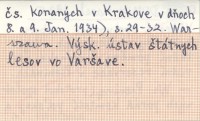 čs. konaných v Krakove v dňoch
8. a 9. Jan. 1934), s. 29-32. War-
szawa. Výsk. ústav štátnych
lesov vo Varšave.